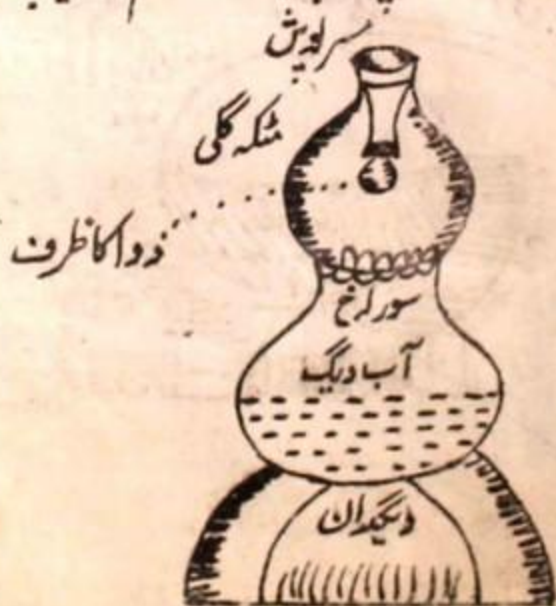 سرپوش
مٹکہ گلی
دوا کا ظرف
سوراخ
آب دیگ
دیگدان